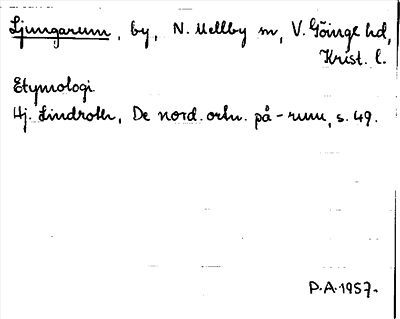 Ljungarum, by, N. Mellby sn, V. Göinge hd,
Krist. l.
Etymologi
Hj. Lindroth, De nord. ortn. på -rum, s. 49.
P.A. 1957.